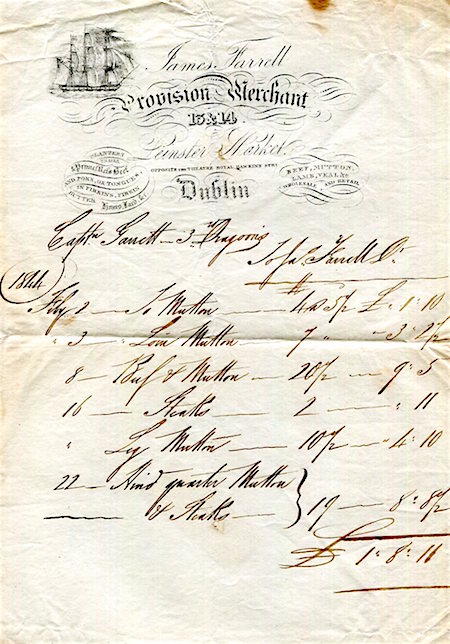 James Farrell
Provision Merchant
13 & 14
Leinster Market
OPPOSITE THE THEATRE ROYAL HAWKINS STRT
Dublin
PLANTERS
& Prime Mess Beef
AND PORK, OX TONGUES,
IN FIRKIN
BUTTER, Hams, Lard, &c
BEEF, MUTTON,
LAMB, VEAL, &c
WHOLESALE AND RETAIL.
Captn Garrett — 3rd Dragoons
To Jas Farrell Dr
1844
Feby 2 — To Mutton — 4 @ 5½ £ " 1 : 10
" 3 — " Loin Mutton — 7 " " 3 : 2½
8 — Beef & Mutton — 20½ — 9 : 5
16 — Steaks — 2 — " 11
" Leg Mutton — 10½ — " 4 : 10
22 — Hind quarter Mutton
& Steaks — } 19 — 8 : 8½
£ 1 : 8 : 11